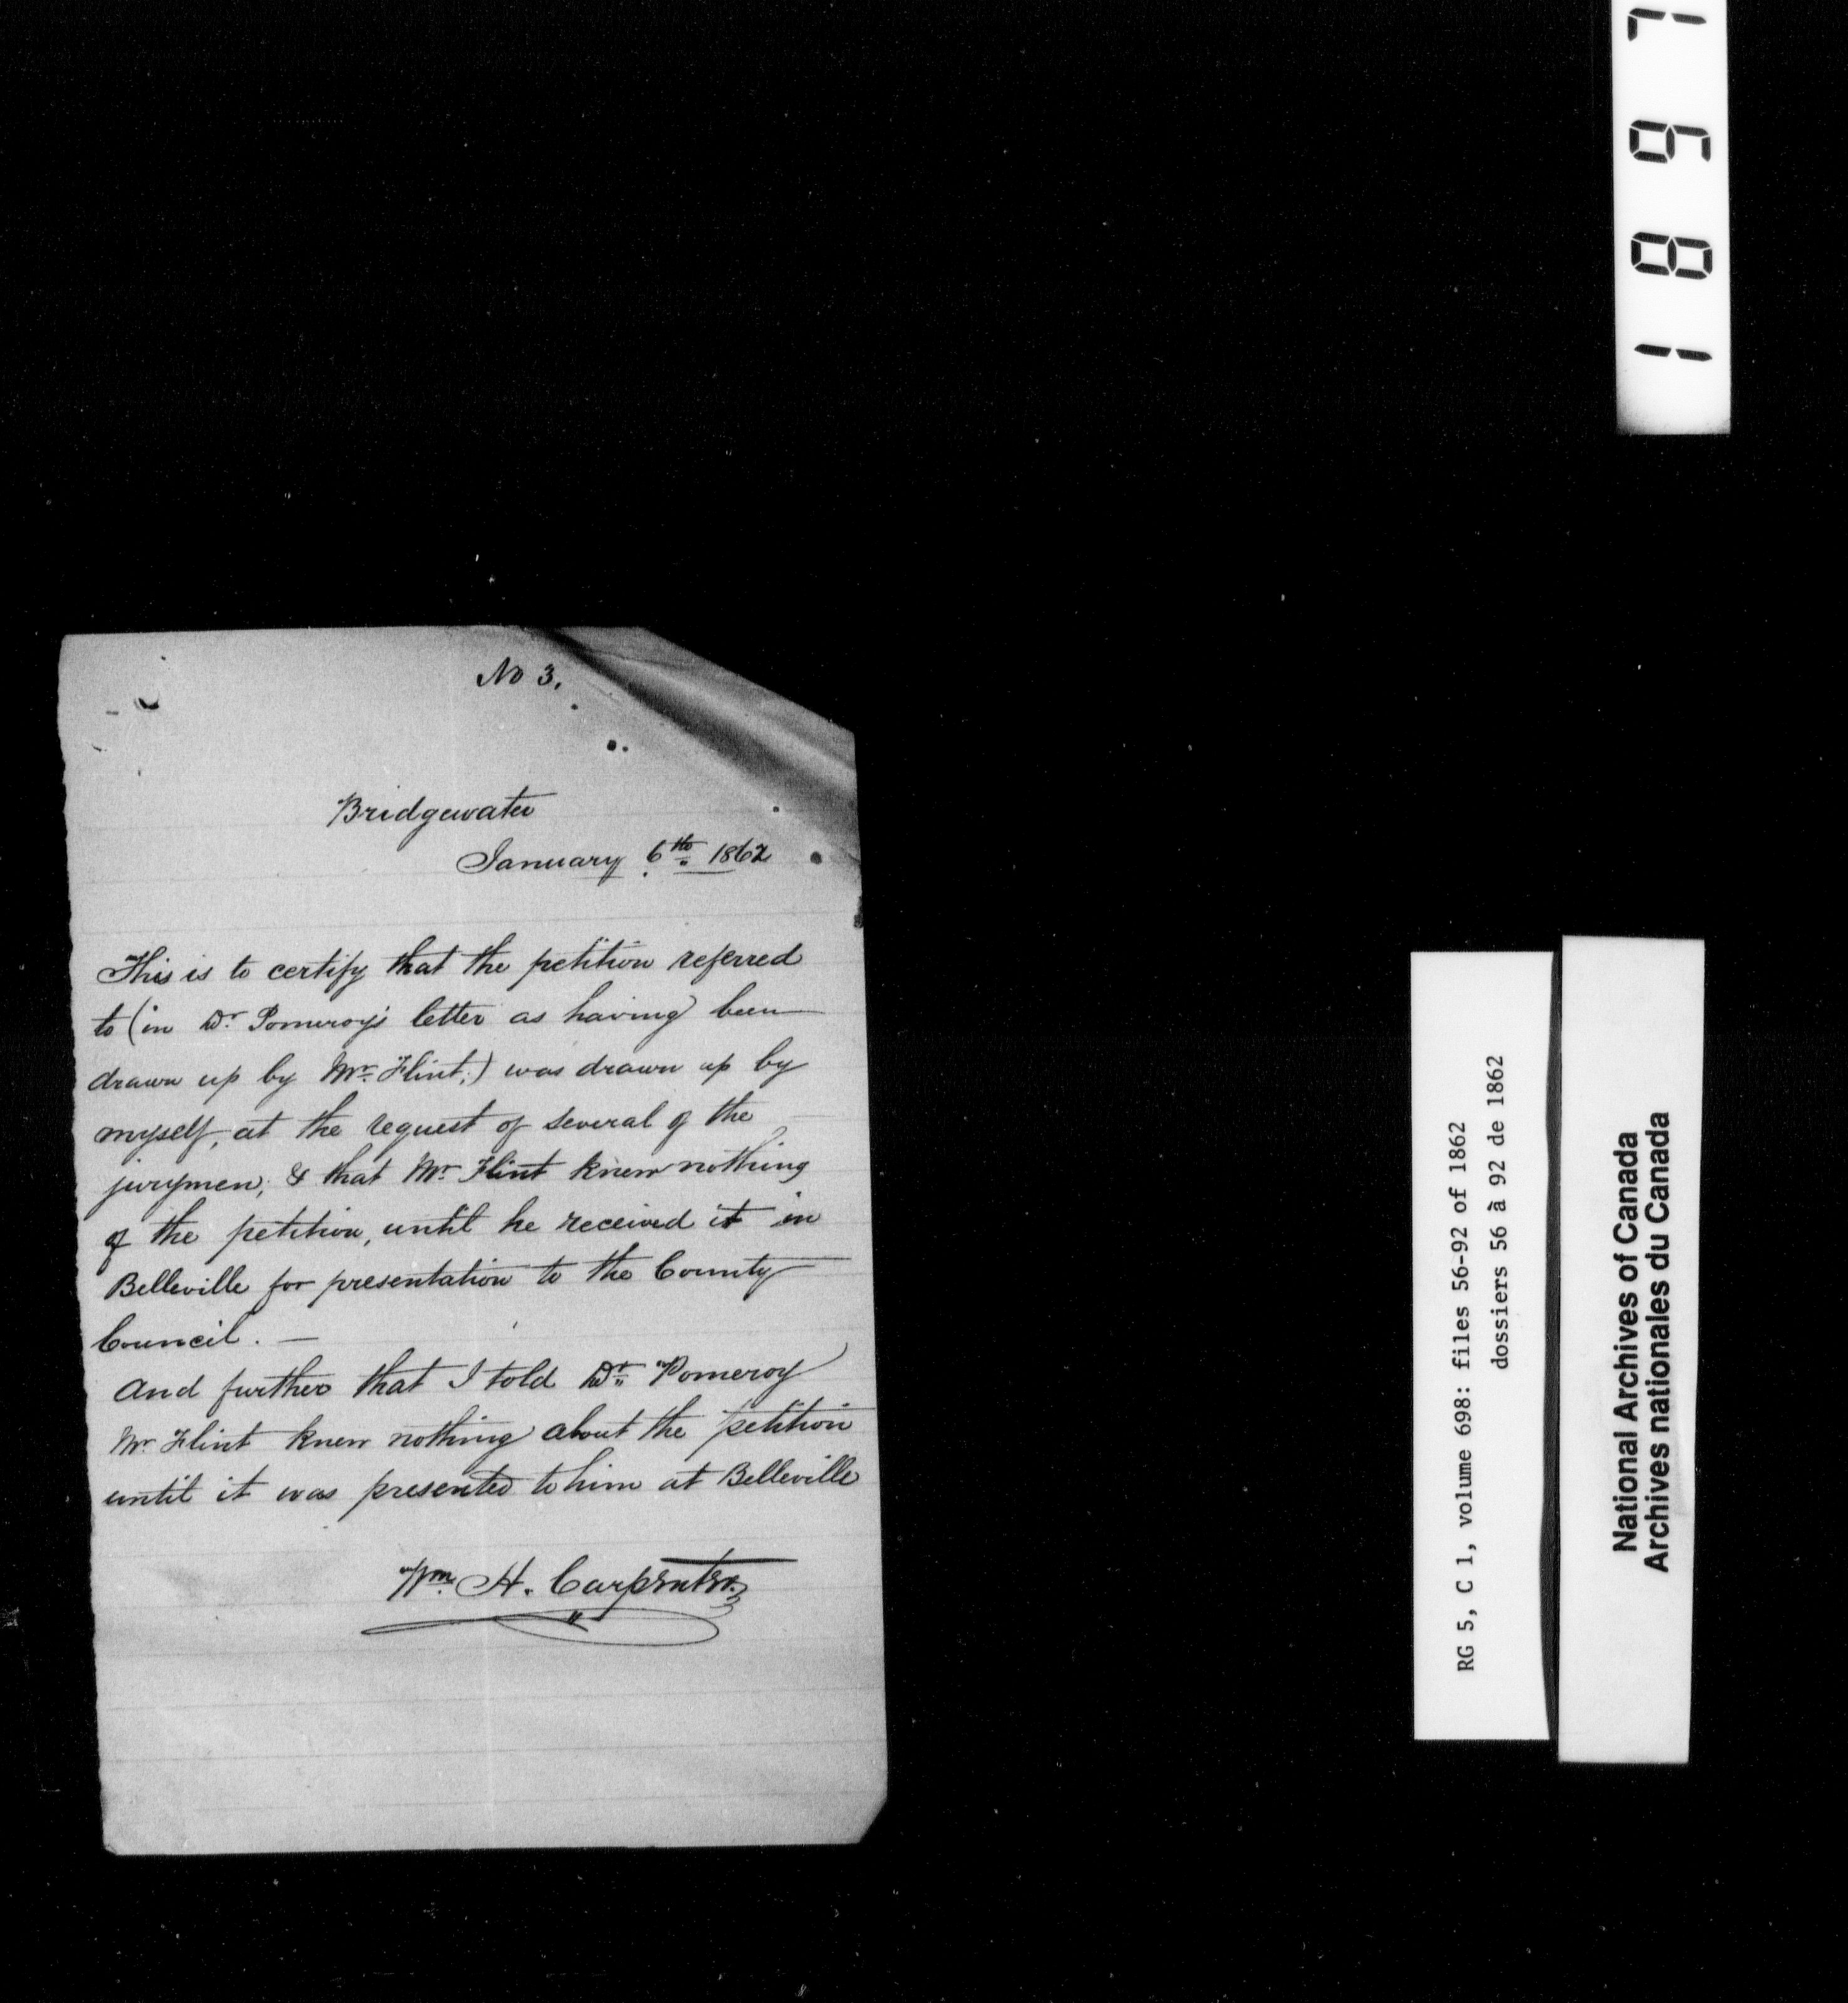 No 3.
Bridgewater
January 6th 1862
This is to certify that the petition referred
to (in Dr. Pomeroy's letter as having been
drawn up by Mr. Flint;) was drawn up by
myself, at the request of several of the
jurymen; & that Mr. Flint knew nothing
of the petition, until he received it in
Belleville for presentation to the County
Council. —
And further that I told Dr. Pomeroy
Mr. Flint knew nothing about the petition
until it was presented to him at Belleville
Wm. H. Carpenter.
RG 5, C 1, volume 698: files 56-92 of 1862
dossiers 56 à 92 de 1862
National Archives of Canada
Archives nationales du Canada